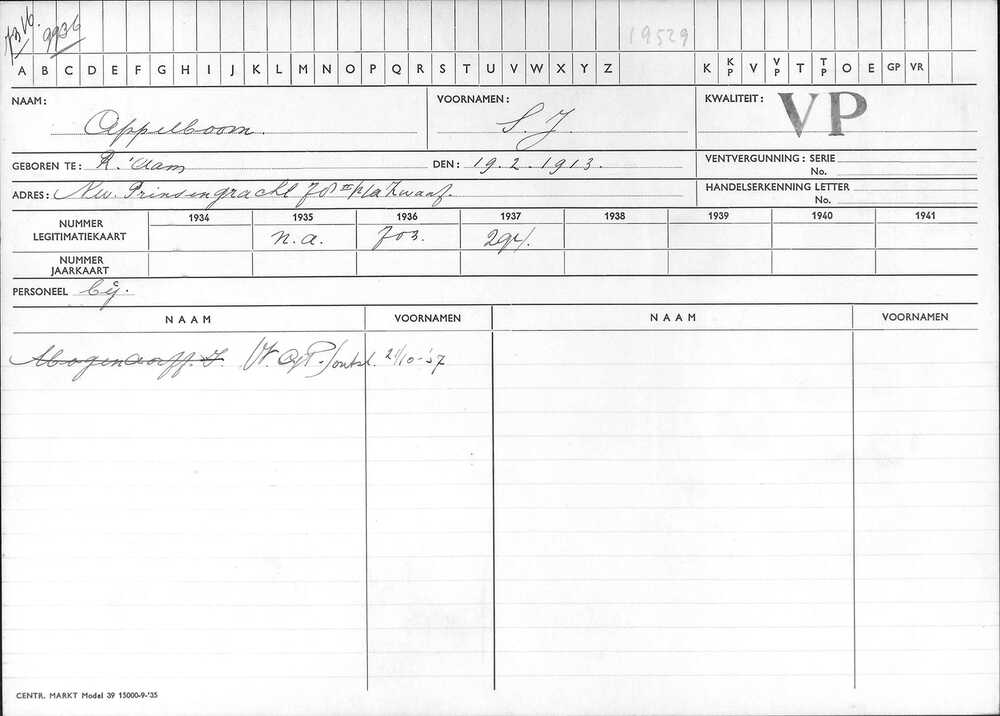 19529
9936
A B C D E F G H I J K L M N O P Q R S T U V W X Y Z K KP V VP T TP O E GP VR
NAAM: Appelboom. VOORNAMEN: S. J. KWALITEIT: VP
GEBOREN TE: R.'dam DEN: 19.2.1913. VENTVERGUNNING: SERIE
No.
ADRES: Nw. Prinsengracht 78 III p/a Zwaaf. HANDELSERKENNING LETTER
No.
1934 1935 1936 1937 1938 1939 1940 1941
NUMMER LEGITIMATIEKAART n.a. 703. 291.
NUMMER JAARKAART
PERSONEEL
NAAM VOORNAMEN NAAM VOORNAMEN
21/10-'37
CENTR. MARKT Model 39 15000-9-'35